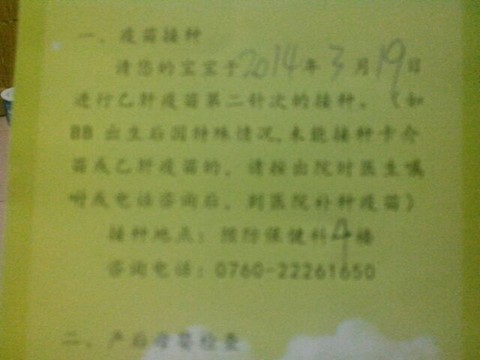 一、疫苗接种
请您的宝宝于2014年3月19日
进行乙肝疫苗第二针次的接种。（如
BB 出生后因特殊情况,未能接种卡介
苗或乙肝疫苗的，请按出院时医生嘱
咐或电话咨询后，到医院补种疫苗）
接种地点：预防保健科4楼
咨询电话：0760-22261650
二、产后母婴检查